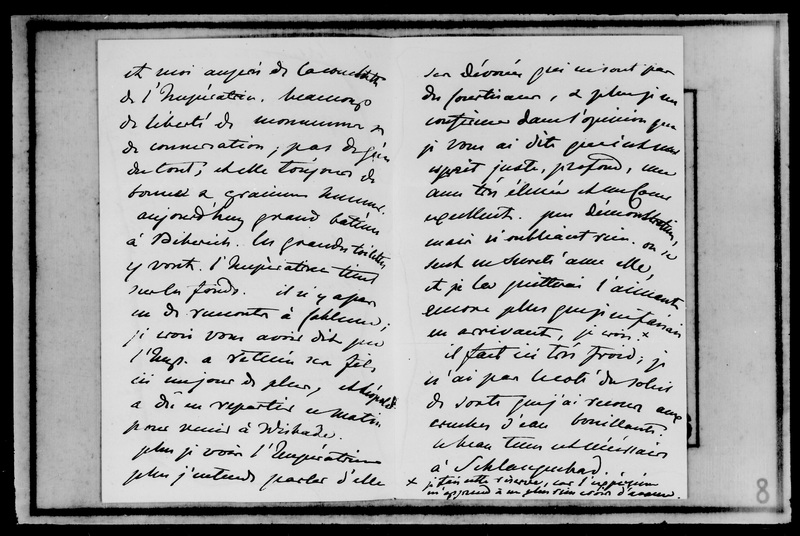 et moi auprès de la comtesse
de l'Impératrice. beaucoup
de liberté de mouvemens et
de conversation, pas de gêne
du tout; et elle toujours de
bonne et gracieuse humeur.
aujourd'huy grand batême
à Biberich. les grandes toilettes
y vont. l'Impératrice tient
sur les fonds. il n'y a pas
eu de rencontre à Coblence,
je crois vous avoir dit que
l'Imp. a retenu son fils
ici un jour de plus, et
a dû en repartir ce matin
pour venir à Wisbade.
plus je vois l'Impératrice
plus j'entends parler d'elle
ses dévoués qui ne sont pas
des courtisans, et plus je me
confirme dans l'opinion que
je vous ai dite que c'est un
esprit juste, profond, une
ame très élevée et un cœur
excellent. peu démonstrative,
mais n'oubliant rien. on se
sent en sureté avec elle,
et je la quitterai l'aimant
encore plus que je ne faisais
en arrivant, je crois. x
il fait ici très froid, je
n'ai pas hérité du soleil
de sorte que j'ai recours aux
cruches d'eau bouillante.
ce beau tems est nécessaire
à Schlangenbad.
x je fais cette réserve, car l'expérience
m'apprend à ne plus rien croire d'avance.
8